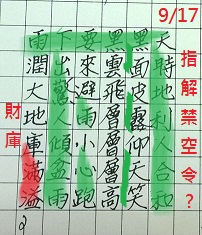 9/17
指解禁空令？
天時地利人合和
黑面皮露仰天笑
黑雲飛層層層高
要來避雨小心跑
下出驚人傾盆雨
雨潤大地庫滿溢
財庫